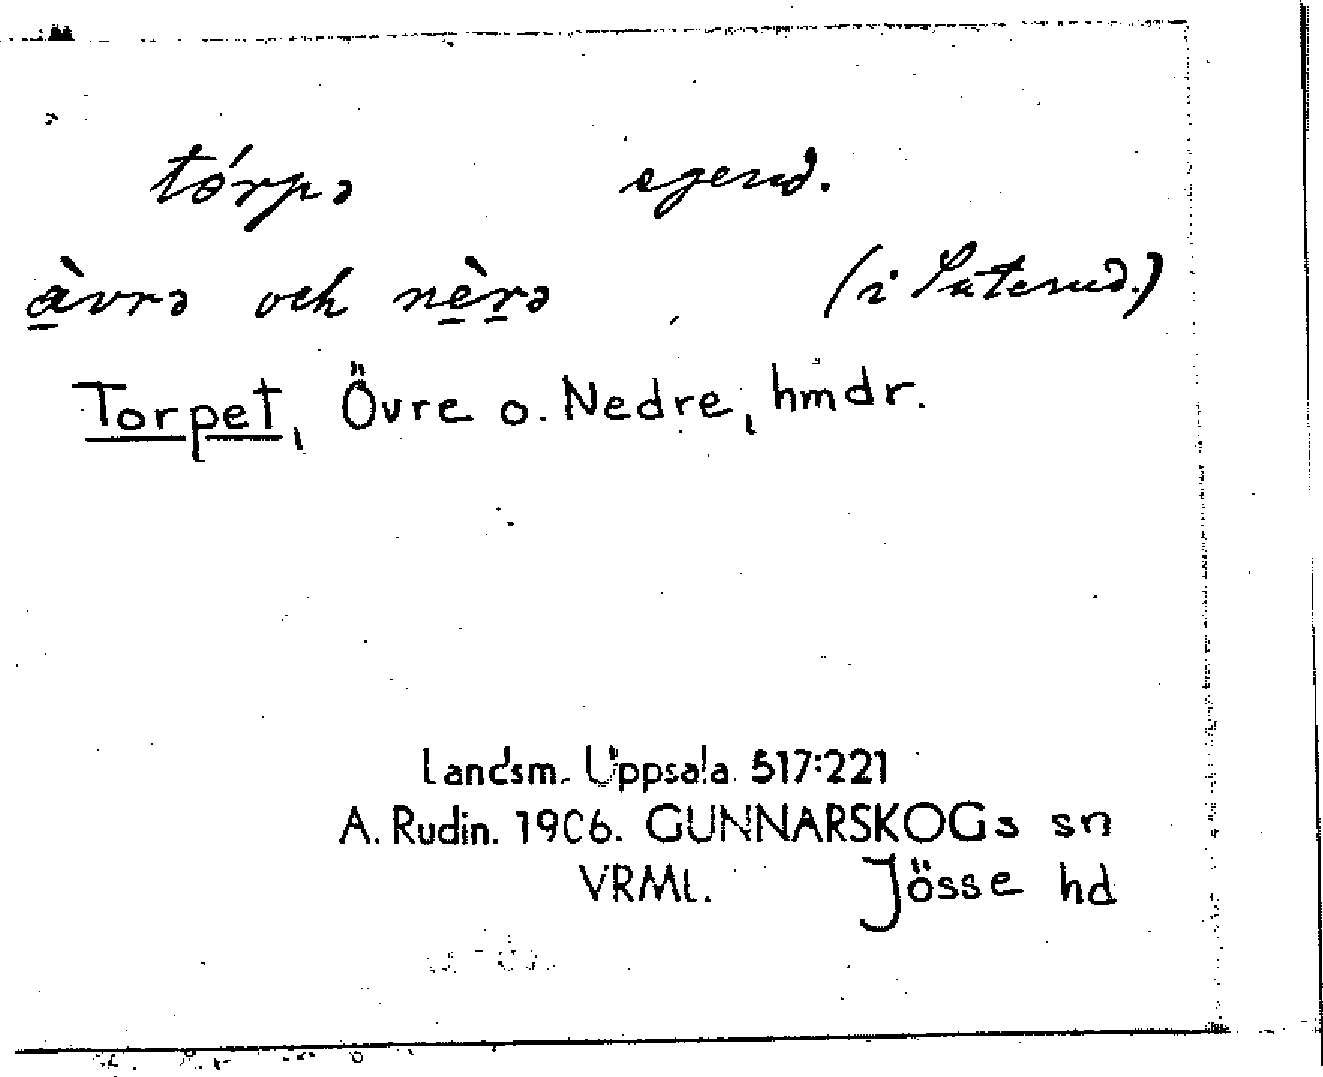 tórpə egend.
àvrə och nèrə (i Säterud.)
Torpet, Övre o. Nedre, hmdr.
Landsm. Uppsala 517:221
A. Rudin. 1906. GUNNARSKOGs sn
VRML. Jösse hd